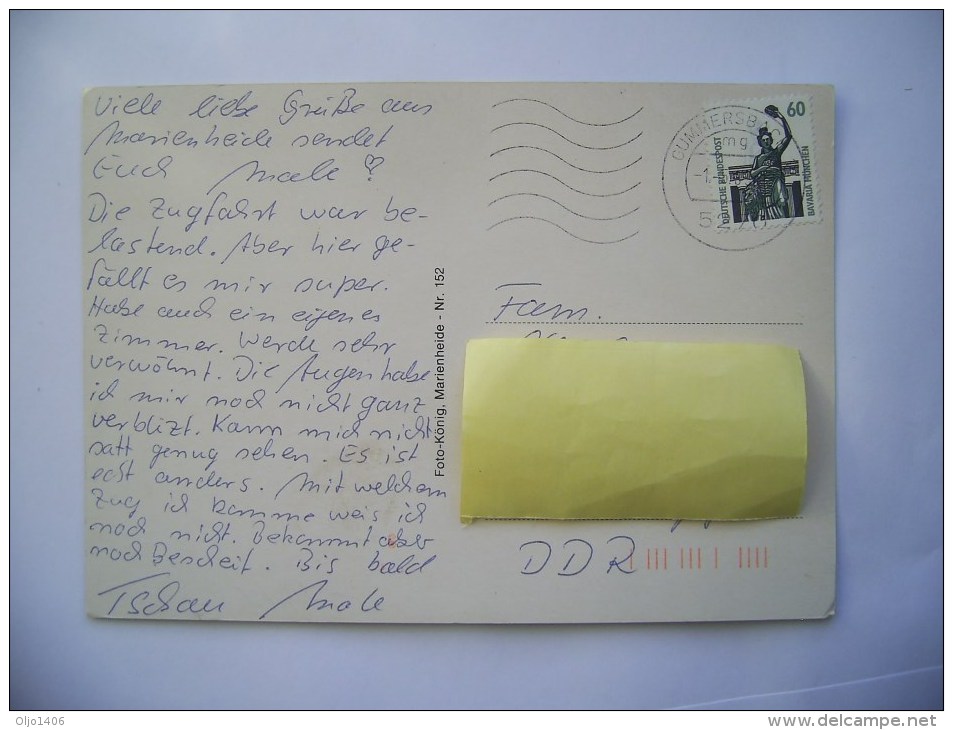 Viele liebe Grüße aus
Marienheide sendet
Euch Male
Die Zugfahrt war be-
lastend. Aber hier ge-
fällt es mir super.
Habe auch ein eigenes
Zimmer. Werde sehr
verwöhnt. Die Augen habe
ich mir noch nicht ganz
verblizt. Kann mich nicht
satt genug sehen. Es ist
echt anders. Mit welchem
Zug ich komme weis ich
noch nicht. Bekommt aber
noch Bescheit. Bis bald
Tschau Male
Foto-König, Marienheide - Nr. 152
GUMMERSBACH
mg
52
60
DEUTSCHE BUNDESPOST
BAVARIA MÜNCHEN
Fam.
DDR
Oljo1406
www.delcampe.net